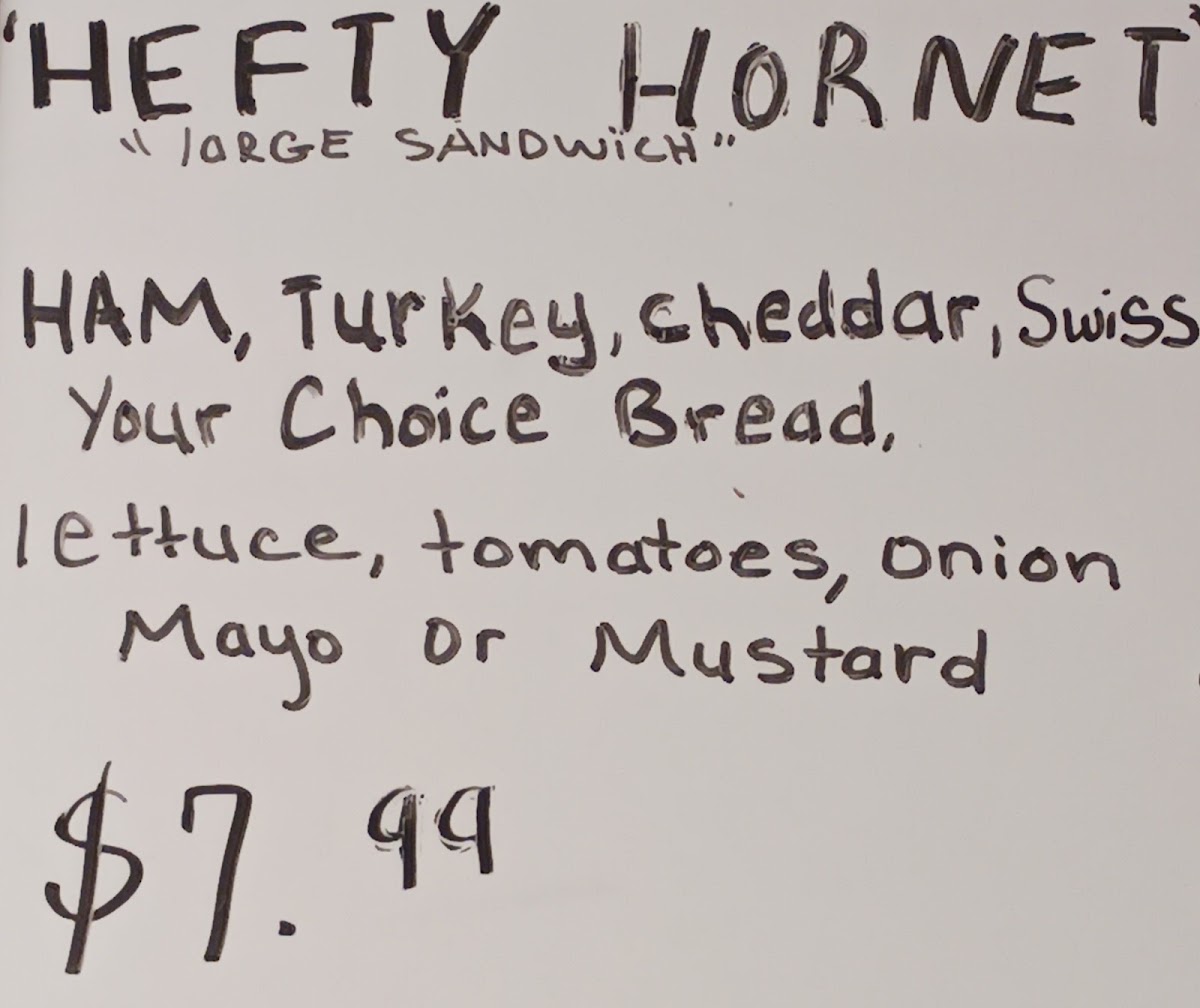 "HEFTY HORNET"
"lARGE SANDWiCH"
HAM, Turkey, cheddar, Swiss
Your Choice Bread.
lettuce, tomatoes, onion
Mayo or Mustard
$7.99